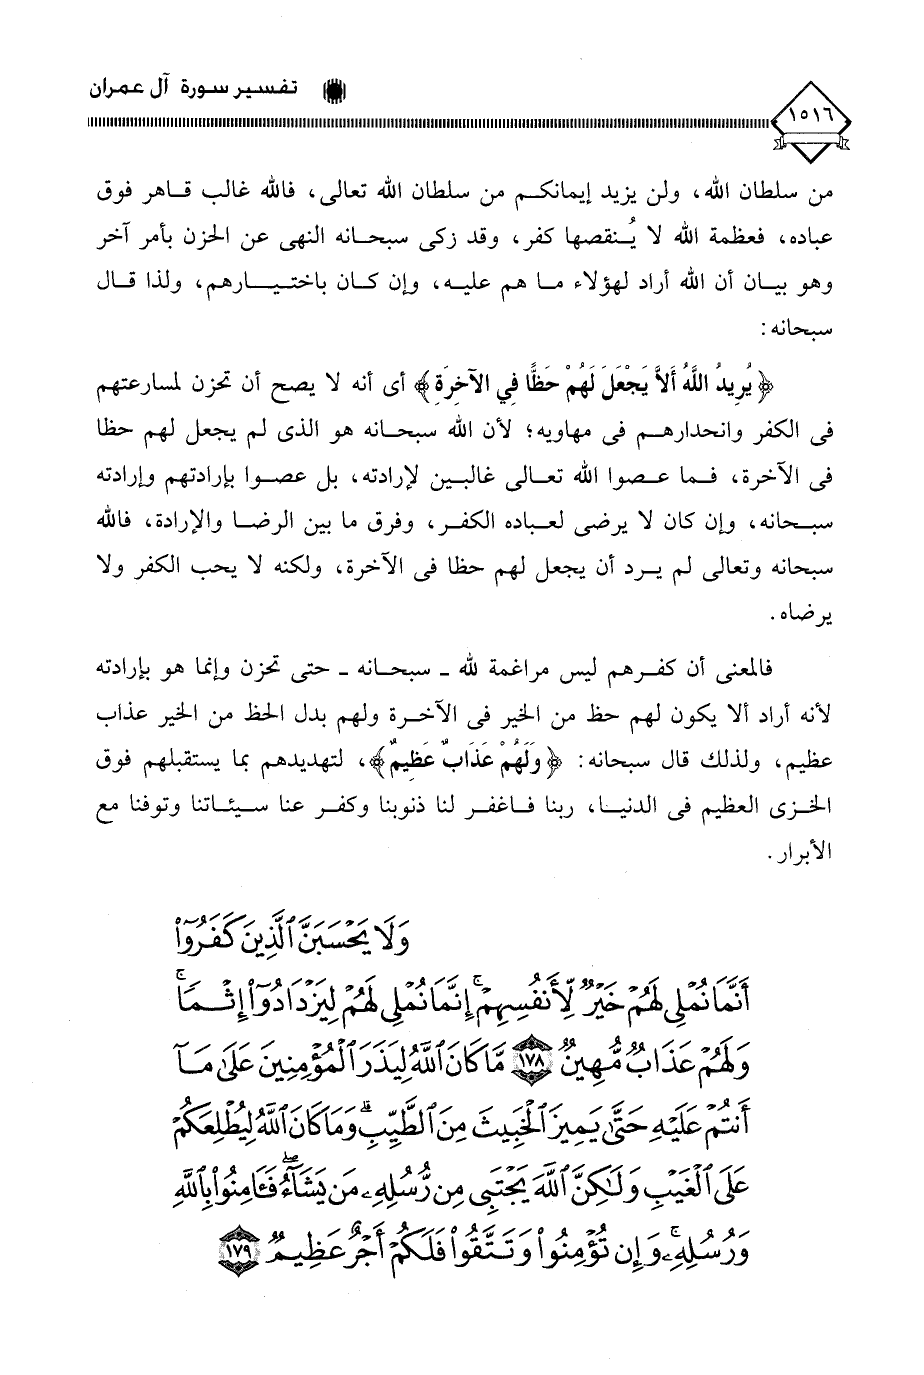 تفسير سورة آل عمران
١٥١٦
من سلطان الله، ولن يزيد إيمانكم من سلطان الله تعالى، فالله غالب قاهر فوق
عباده، فعظمة الله لا يُنقصها كفر، وقد زكى سبحانه النهى عن الحزن بأمر آخر
وهو بيان أن الله أراد لهؤلاء ما هم عليه، وإن كان باختيارهم، ولذا قال
سبحانه:
﴿يُرِيدُ اللَّهُ أَلاَّ يَجْعَلَ لَهُمْ حَظًّا فِي الآخِرَةِ﴾ أى أنه لا يصح أن تحزن لمسارعتهم
فى الكفر وانحدارهم فى مهاويه؛ لأن الله سبحانه هو الذى لم يجعل لهم حظا
فى الآخرة، فما عصوا الله تعالى غالبين لإرادته، بل عصوا بإرادتهم وإرادته
سبحانه، وإن كان لا يرضى لعباده الكفر، وفرق ما بين الرضا والإرادة، فالله
سبحانه وتعالى لم يرد أن يجعل لهم حظا فى الآخرة، ولكنه لا يحب الكفر ولا
يرضاه.
فالمعنى أن كفرهم ليس مراغمة لله ـ سبحانه ـ حتى تحزن وإنما هو بإرادته
لأنه أراد ألا يكون لهم حظ من الخير فى الآخرة ولهم بدل الحظ من الخير عذاب
عظيم، ولذلك قال سبحانه: ﴿وَلَهُمْ عَذَابٌ عَظِيمٌ﴾، لتهديدهم بما يستقبلهم فوق
الخزى العظيم فى الدنيا، ربنا فاغفر لنا ذنوبنا وكفر عنا سيئاتنا وتوفنا مع
الأبرار.
وَلَا يَحْسَبَنَّ ٱلَّذِينَ كَفَرُوٓا۟
أَنَّمَا نُمْلِى لَهُمْ خَيْرٌ لِّأَنفُسِهِمْ ۚ إِنَّمَا نُمْلِى لَهُمْ لِيَزْدَادُوٓا۟ إِثْمًا ۚ
وَلَهُمْ عَذَابٌ مُّهِينٌ ١٧٨ مَّا كَانَ ٱللَّهُ لِيَذَرَ ٱلْمُؤْمِنِينَ عَلَىٰ مَآ
أَنتُمْ عَلَيْهِ حَتَّىٰ يَمِيزَ ٱلْخَبِيثَ مِنَ ٱلطَّيِّبِ ۗ وَمَا كَانَ ٱللَّهُ لِيُطْلِعَكُمْ
عَلَى ٱلْغَيْبِ وَلَٰكِنَّ ٱللَّهَ يَجْتَبِى مِن رُّسُلِهِۦ مَن يَشَآءُ ۖ فَـَٔامِنُوا۟ بِٱللَّهِ
وَرُسُلِهِۦ ۚ وَإِن تُؤْمِنُوا۟ وَتَتَّقُوا۟ فَلَكُمْ أَجْرٌ عَظِيمٌ ١٧٩